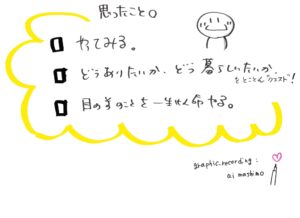 思ったこと。
やってみる。
どうありたいか、どう暮らしたいか
をとことん"クラスト"!
目の前のことを一生けん命やる。
graphic.recording:
ai mashimo